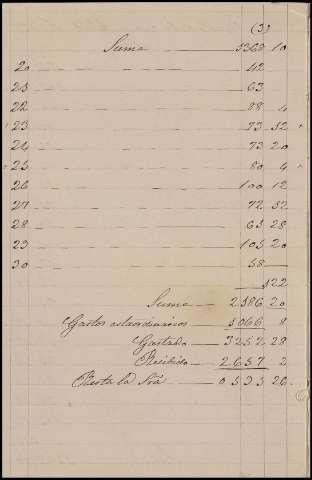 (3)
Suma — 1368 10
20 — 42
21 — 63
22 — 88 4
23 — 73 12
24 — 73 20
25 — 80 4
26 — 100 12
27 — 72 12
28 — 63 28
29 — 103 20
30 — 58 —
122
Suma — 2186 20
Gastos extraordinarios — 1066 8
Gastado — 3252 28
Recibido — 2657 2
Resta la Sra — 0595 26